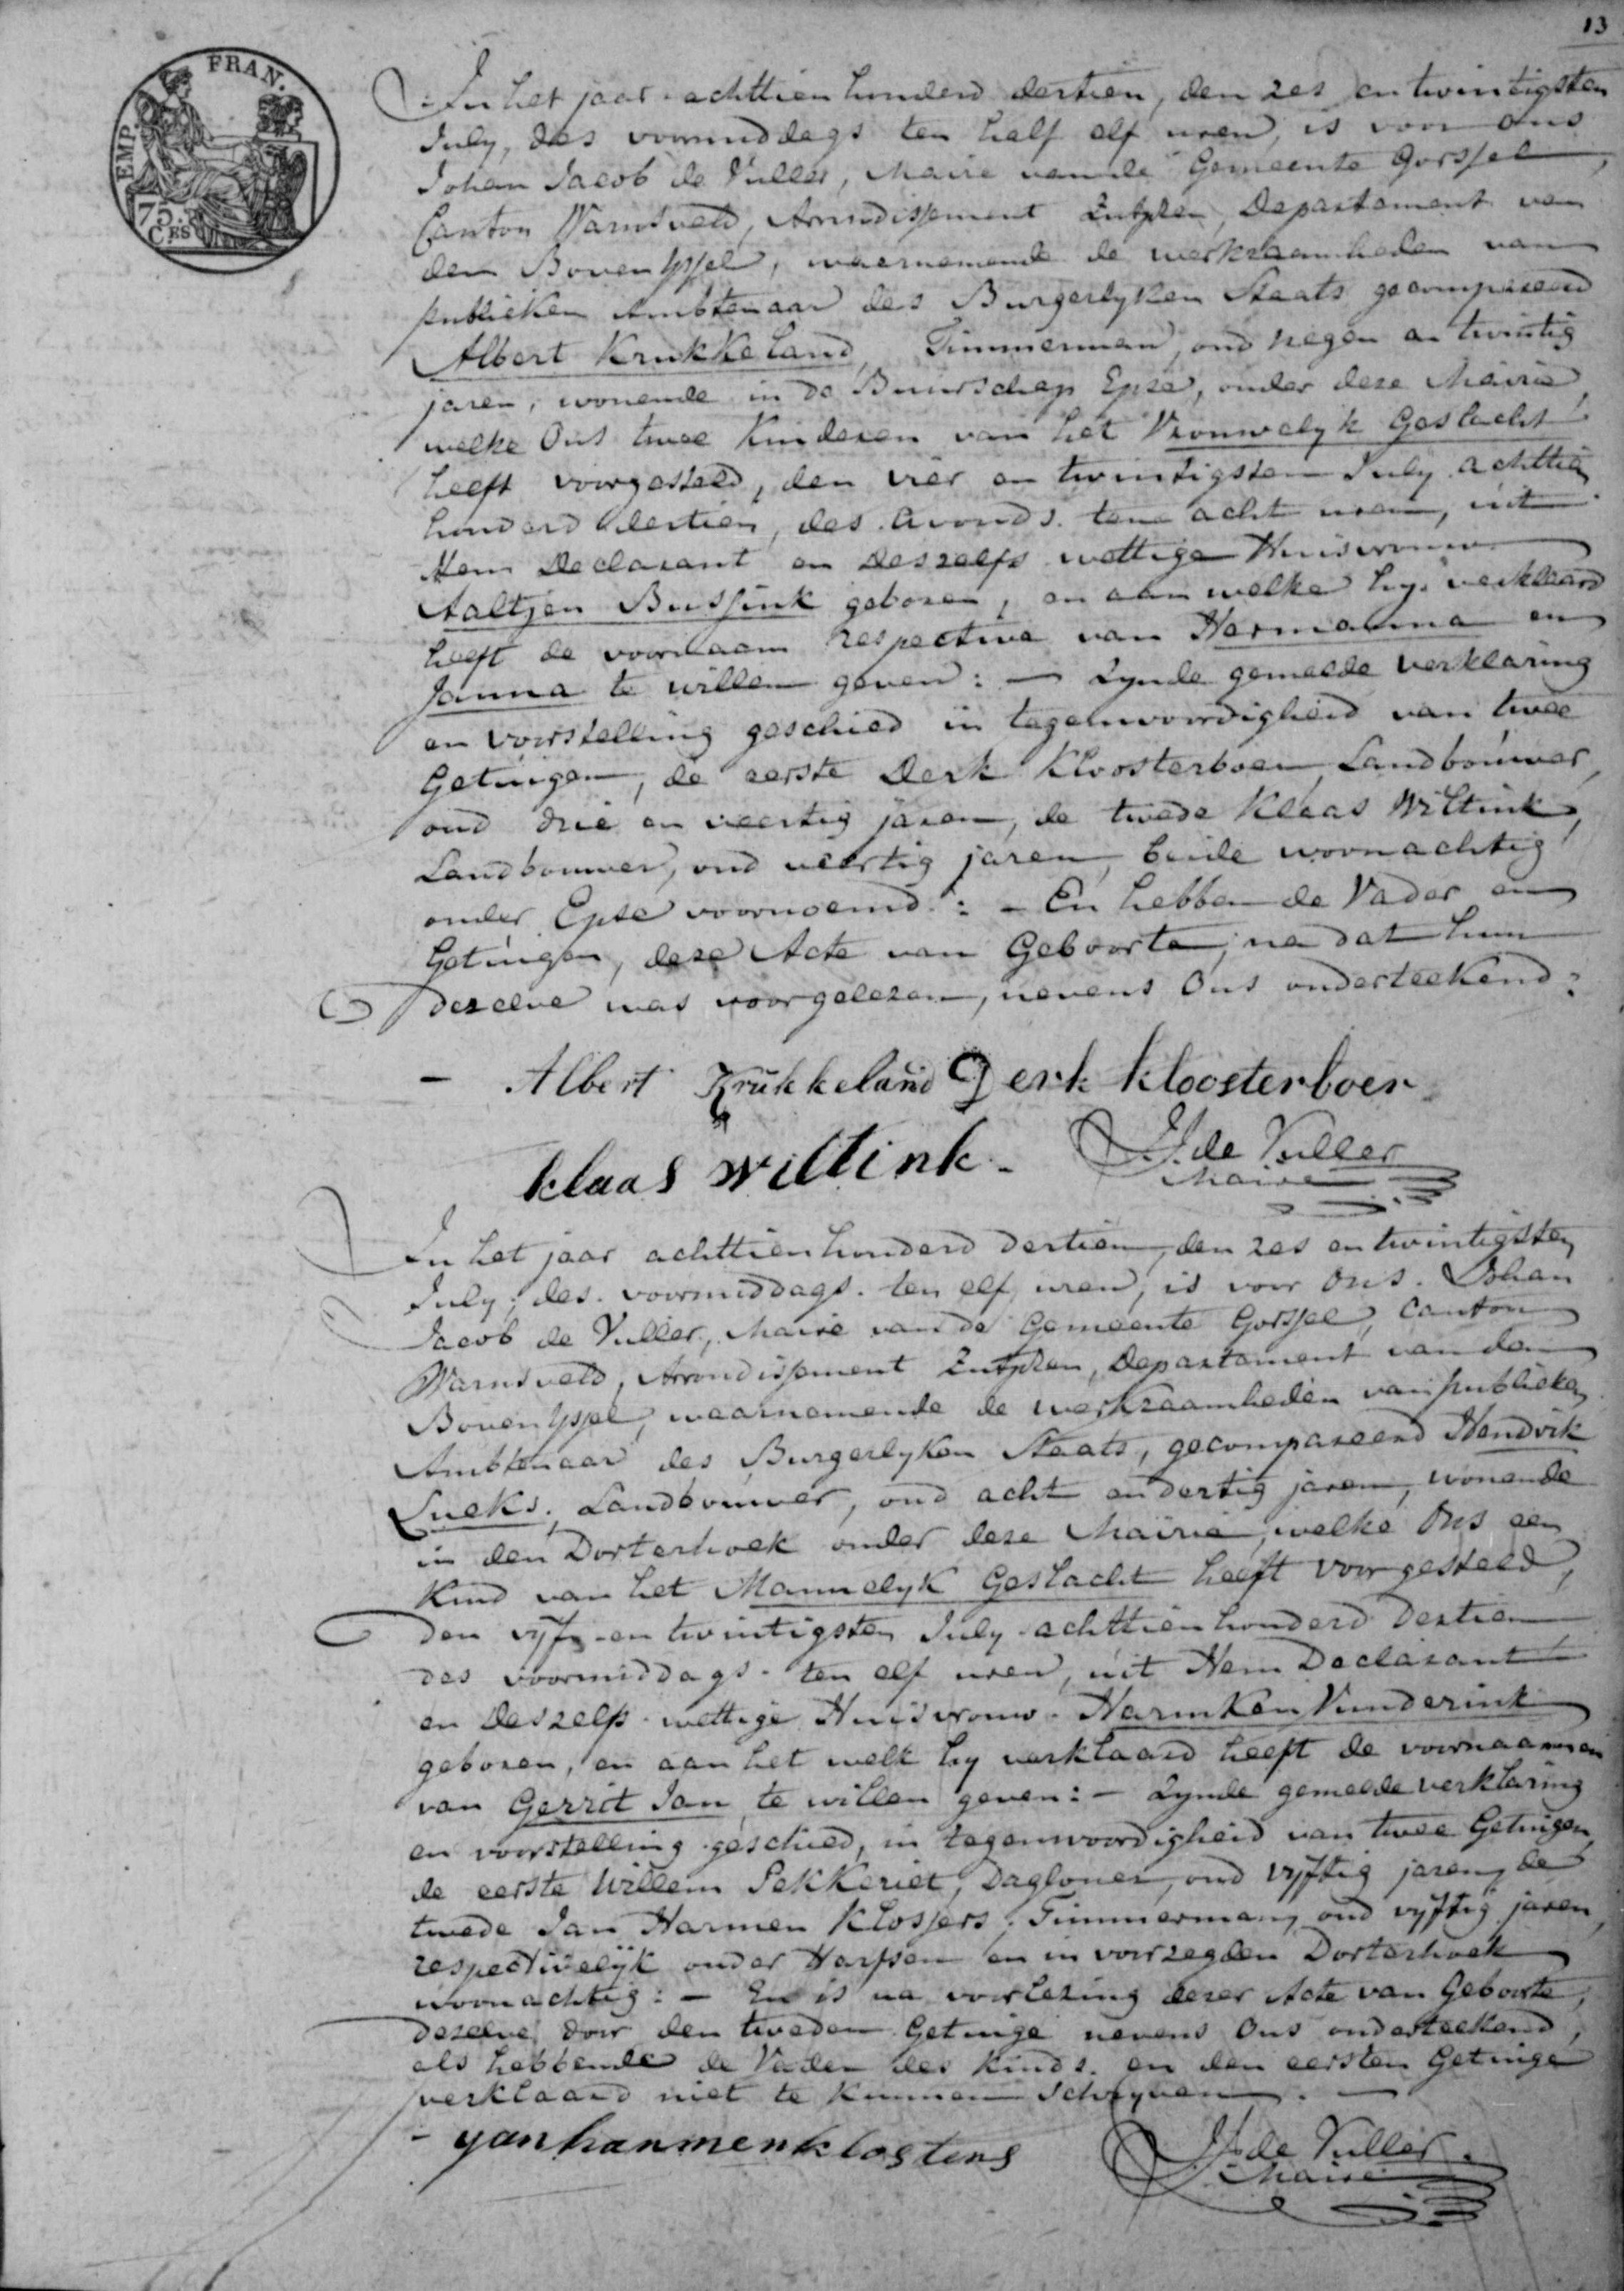 13
EMP. FRAN.
75.
CES
In het jaar achttien honderd dertien, den zes en twintigsten
July, des voormiddags ten half elf uren, is voor Ons
Johan Jacob de Vuller, Maire van de Gemeente Gorssel,
Canton Warnsveld, Arrondissement Zutphen, Departement van
den Boven Yssel, waarnemende de werkzaamheden van
publieken Ambtenaar des Burgerlyken Staats gecompareerd
Albert Krukkeland, Timmerman, oud negen en twintig
jaren, wonende in de Buurschap Epse, onder deze Mairie,
welke Ons twee Kinderen van het Vrouwelyk Geslacht
heeft voorgesteld, den vier en twintigsten July achttien
honderd dertien, des avonds ten acht uren, uit
Hem Declarant en Deszelfs wettige Huisvrouw
Aaltjen Bussink geboren, en aan welke hy verklaard
heeft de voornaam respective van Harmanna en
Janna te willen geven: — Zynde gemelde verklaring
en voorstelling geschied in tegenwoordigheid van twee
Getuigen, de eerste Derk Kloosterboer, Landbouwer,
oud drie en veertig jaren, de twede Klaas Wiltink,
Landbouwer, oud veertig jaren, beide woonachtig
onder Epse voornoemd: — En hebben de Vader en
Getuigen, deze Acte van Geboorte, na dat hun
dezelve was voorgelezen, nevens Ons onderteekend:
— Albert Krukkeland Derk Kloosterboer
klaas wiltink. JJ. de Vuller
Maire
In het jaar achttien honderd dertien, den zes en twintigsten
July, des voormiddags ten elf uren, is voor Ons Johan
Jacob de Vuller, Maire van de Gemeente Gorssel, Canton
Warnsveld, Arrondissement Zutphen, Departement van den
Boven Yssel, waarnemende de werkzaamheden van publieken
Ambtenaar des Burgerlyken Staats, gecompareerd Hendrik
Lueks, Landbouwer, oud acht en dertig jaren, wonende
in den Dorterhoek onder deze Mairie, welke Ons een
Kind van het Mannelyk Geslacht heeft voorgesteld,
den vyf en twintigsten July achttien honderd dertien
des voormiddags ten elf uren, uit Hem Declarant
en Deszelfs wettige Huisvrouw Harmken Vunderink
geboren, en aan het welk hy verklaard heeft de voornaamen
van Gerrit Jan te willen geven: — Zynde gemelde verklaring
en voorstelling geschied, in tegenwoordigheid van twee Getuigen,
de eerste Willem Sekkeriet, Dagloner, oud vyftig jaren, de
twede Jan Harmen Klosters, Timmerman, oud vyftig jaren,
respectivelyk onder Harfsen en in voorzegden Dorterhoek
woonachtig: — En is na voorlezing dezer Acte van Geboorte,
dezelve door den tweden Getuige nevens Ons onderteekend,
als hebbende de Vader des Kinds en den eersten Getuige
verklaard niet te kunnen Schryven. —
— yan harmen klostens JJ. de Vuller
Maire